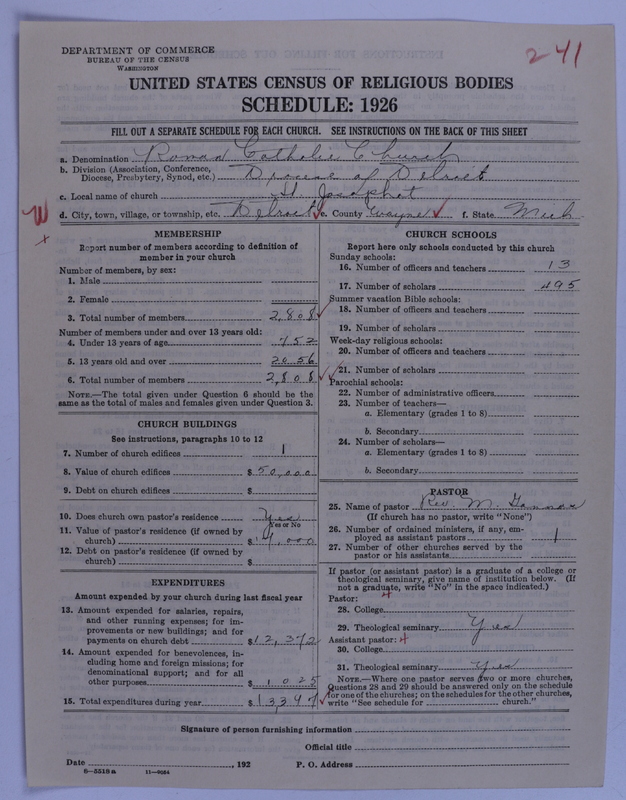 DEPARTMENT OF COMMERCE
BUREAU OF THE CENSUS
WASHINGTON
241
UNITED STATES CENSUS OF RELIGIOUS BODIES
SCHEDULE: 1926
FILL OUT A SEPARATE SCHEDULE FOR EACH CHURCH. SEE INSTRUCTIONS ON THE BACK OF THIS SHEET
a. Denomination Roman Catholic Church
b. Division (Association, Conference, Diocese, Presbytery, Synod, etc.) Diocese of Detroit
c. Local name of church St. Josaphat
W
x
d. City, town, village, or township, etc. Detroit e. County Wayne f. State Mich
MEMBERSHIP
Report number of members according to definition of
member in your church
Number of members, by sex:
1. Male
2. Female
3. Total number of members 2,808
Number of members under and over 13 years old:
4. Under 13 years of age 752
5. 13 years old and over 2056
6. Total number of members 2,808
NOTE.—The total given under Question 6 should be the
same as the total of males and females given under Question 3.
CHURCH BUILDINGS
See instructions, paragraphs 10 to 12
7. Number of church edifices 1
8. Value of church edifices $ 50,000
9. Debt on church edifices $
10. Does church own pastor's residence Yes
Yes or No
11. Value of pastor's residence (if owned by
church) $ ,000
12. Debt on pastor's residence (if owned by
church) $
EXPENDITURES
Amount expended by your church during last fiscal year
13. Amount expended for salaries, repairs,
and other running expenses; for im-
provements or new buildings; and for
payments on church debt $ 12,372
14. Amount expended for benevolences, in-
cluding home and foreign missions; for
denominational support; and for all
other purposes $ 1,025
15. Total expenditures during year $ 13397
CHURCH SCHOOLS
Report here only schools conducted by this church
Sunday schools:
16. Number of officers and teachers 13
17. Number of scholars 495
Summer vacation Bible schools:
18. Number of officers and teachers
19. Number of scholars
Week-day religious schools:
20. Number of officers and teachers
21. Number of scholars
Parochial schools:
22. Number of administrative officers
23. Number of teachers—
a. Elementary (grades 1 to 8)
b. Secondary
24. Number of scholars—
a. Elementary (grades 1 to 8)
b. Secondary
PASTOR
25. Name of pastor Rev M.
(If church has no pastor, write "None")
26. Number of ordained ministers, if any, em-
ployed as assistant pastors 1
27. Number of other churches served by the
pastor or his assistants
If pastor (or assistant pastor) is a graduate of a college or
theological seminary, give name of institution below. (If
not a graduate, write "No" in the space indicated.)
Pastor: 4
28. College
29. Theological seminary Yes
Assistant pastor: 4
30. College
31. Theological seminary Yes
NOTE.—Where one pastor serves two or more churches,
Questions 28 and 29 should be answered only on the schedule
for one of the churches; on the schedules for the other churches,
write "See schedule for church."
Signature of person furnishing information
Official title
Date , 192 P. O. Address
8—5518a 11—9054